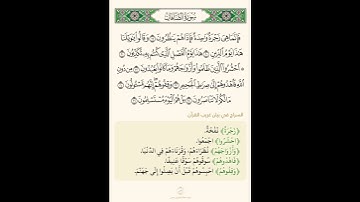 سُورَةُ الصَّافَّاتِ
فَإِنَّمَا هِيَ زَجْرَةٌ وَاحِدَةٌ فَإِذَا هُمْ يَنظُرُونَ ۝ وَقَالُوا يَا وَيْلَنَا
هَذَا يَوْمُ الدِّينِ ۝ هَذَا يَوْمُ الْفَصْلِ الَّذِي كُنتُم بِهِ تُكَذِّبُونَ ۝
۞ احْشُرُوا الَّذِينَ ظَلَمُوا وَأَزْوَاجَهُمْ وَمَا كَانُوا يَعْبُدُونَ ۝ مِن دُونِ
اللَّهِ فَاهْدُوهُمْ إِلَى صِرَاطِ الْجَحِيمِ ۝ وَقِفُوهُمْ إِنَّهُم مَّسْئُولُونَ ۝
مَا لَكُمْ لَا تَنَاصَرُونَ ۝ بَلْ هُمُ الْيَوْمَ مُسْتَسْلِمُونَ ۝
السراج في بيان غريب القرآن
﴿زَجْرَةٌ﴾ نَفْخَةٌ.
﴿احْشُرُوا﴾ اجْمَعُوا.
﴿وَأَزْوَاجَهُمْ﴾ نُظَرَاءَهُمْ، وَقُرَنَاءَهُمْ فِي الدُّنْيَا.
﴿فَاهْدُوهُمْ﴾ سُوقُوهُمْ سَوْقًا عَنِيفًا.
﴿وَقِفُوهُمْ﴾ احْبِسُوهُمْ قَبْلَ أَنْ يَصِلُوا إِلَى جَهَنَّمَ.